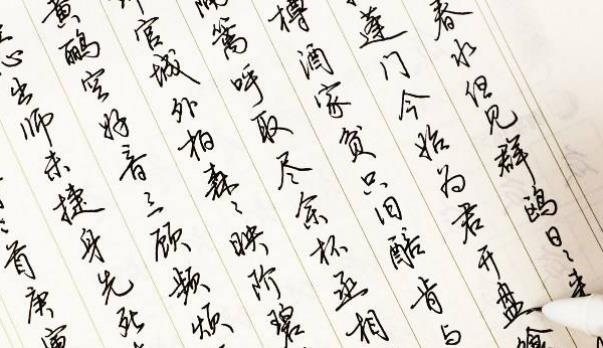 春水但见群鸥日〻来
蓬门今始为君开盘飧
樽酒家贫只旧醅肯与
篱呼取尽余杯丞相
官城外柏森〻映阶碧
黄鹂空好音三顾频烦
心出师未捷身先死
首庚寅